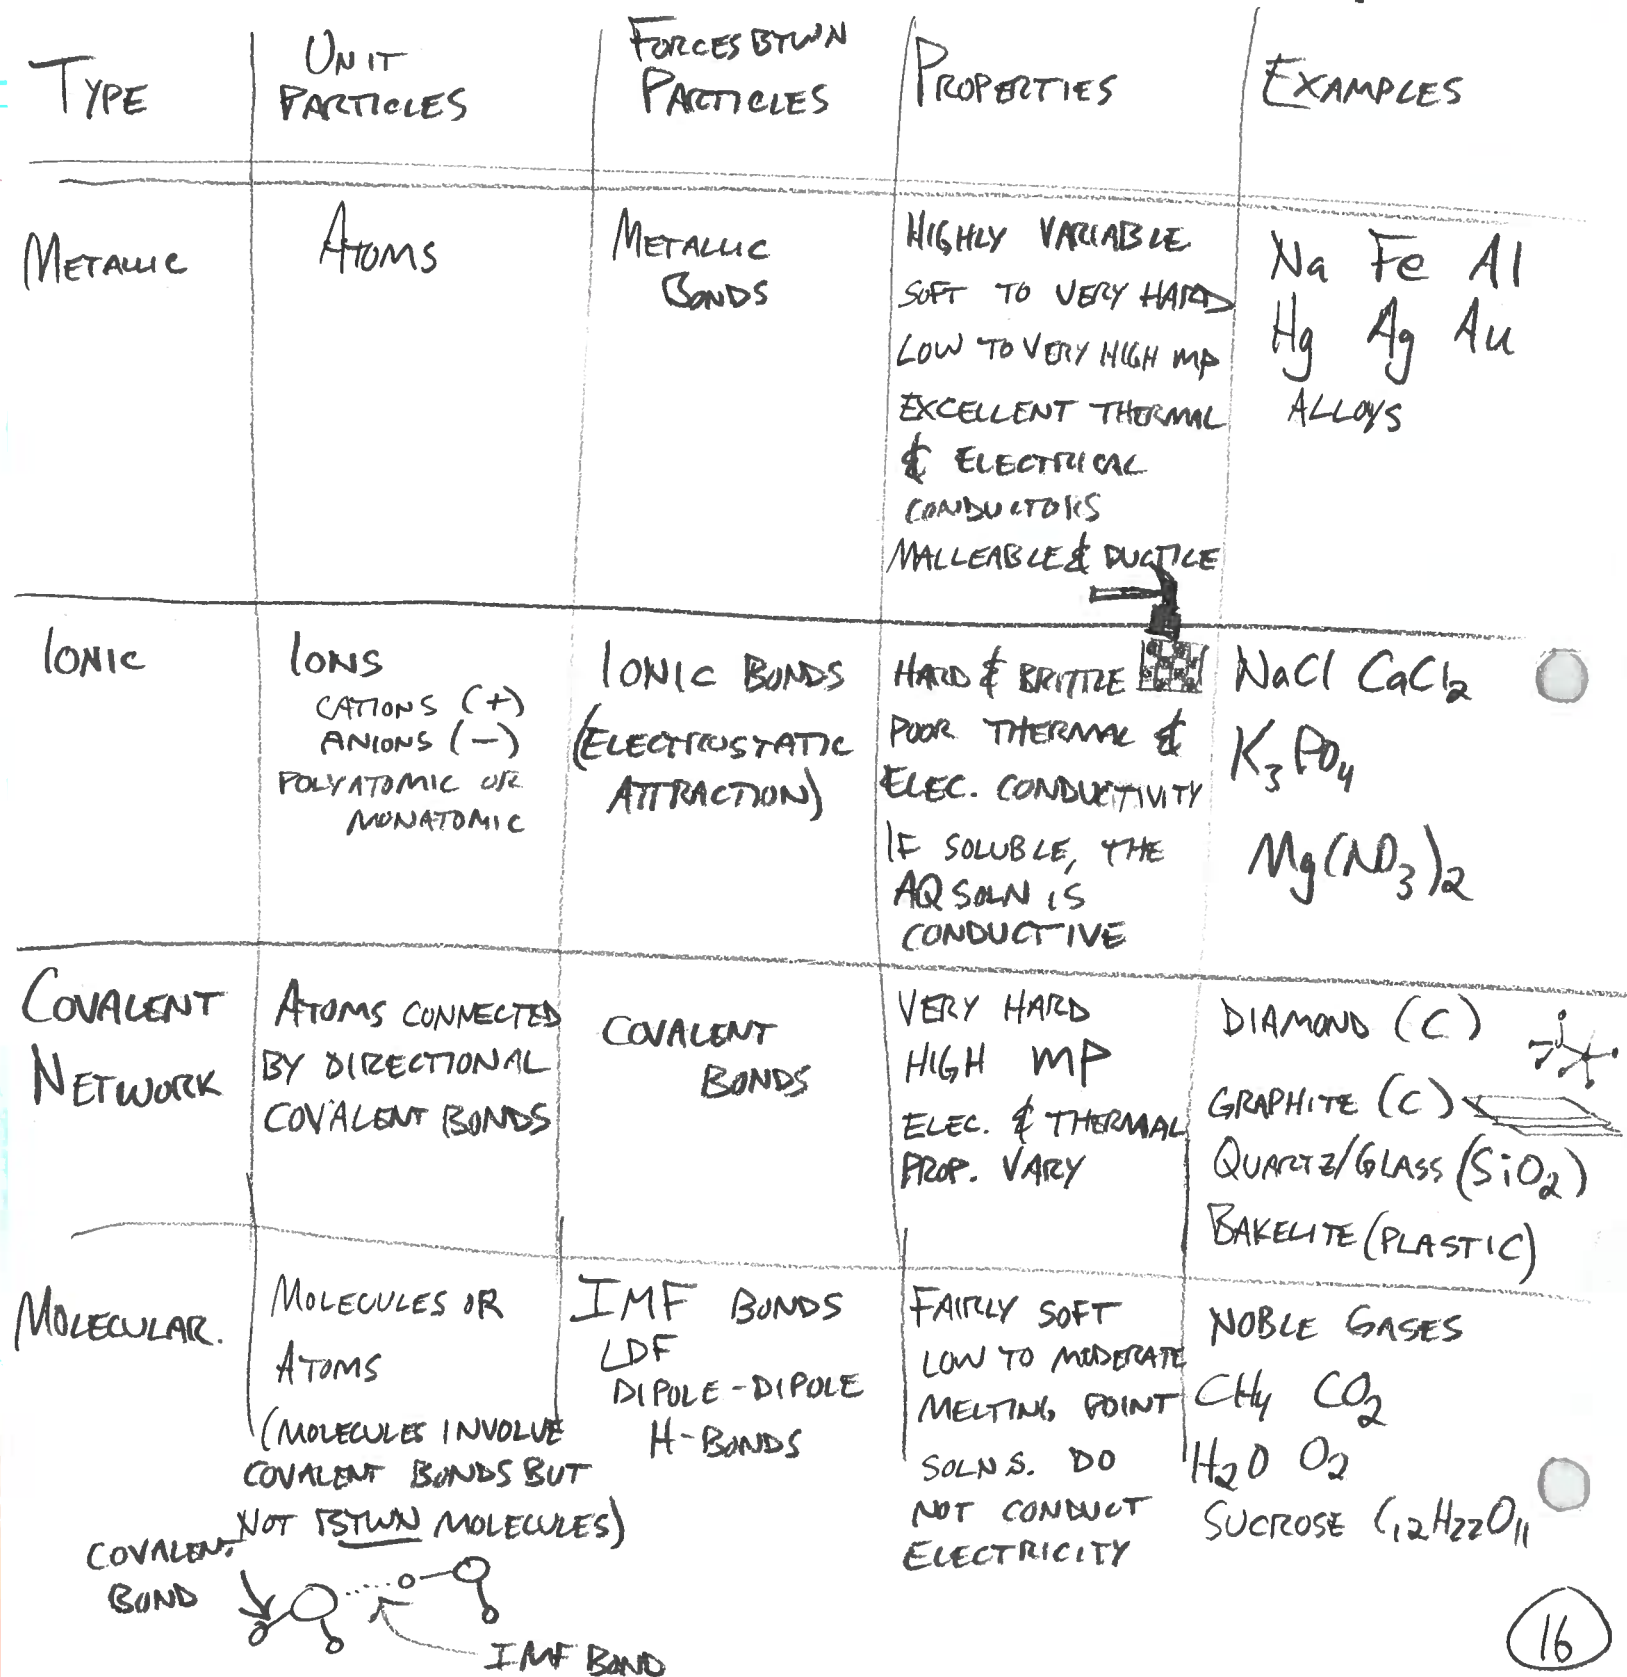 TYPE
UNIT
PARTICLES
FORCES BTWN
PARTICLES
PROPERTIES
EXAMPLES
METALLIC
ATOMS
METALLIC
BONDS
HIGHLY VARIABLE
SOFT TO VERY HARD
LOW TO VERY HIGH MP
EXCELLENT THERMAL
& ELECTRICAL
CONDUCTORS
MALLEABLE & DUCTILE
Na Fe Al
Hg Ag Au
ALLOYS
IONIC
IONS
CATIONS (+)
ANIONS (-)
POLYATOMIC OR
MONATOMIC
IONIC BONDS
(ELECTROSTATIC
ATTRACTION)
HARD & BRITTLE
POOR THERMAL &
ELEC. CONDUCTIVITY
IF SOLUBLE, THE
AQ SOLN IS
CONDUCTIVE
NaCl CaCl2
K3PO4
Mg(NO3)2
COVALENT
NETWORK
ATOMS CONNECTED
BY DIRECTIONAL
COVALENT BONDS
COVALENT
BONDS
VERY HARD
HIGH MP
ELEC. & THERMAL
PROP. VARY
DIAMOND (C)
GRAPHITE (C)
QUARTZ/GLASS (SiO2)
BAKELITE (PLASTIC)
MOLECULAR.
MOLECULES OR
ATOMS
(MOLECULES INVOLVE
COVALENT BONDS BUT
NOT BTWN MOLECULES)
IMF BONDS
LDF
DIPOLE-DIPOLE
H-BONDS
FAIRLY SOFT
LOW TO MODERATE
MELTING POINT
SOLNS. DO
NOT CONDUCT
ELECTRICITY
NOBLE GASES
CH4 CO2
H2O O2
SUCROSE C12H22O11
COVALENT
BOND
IMF BOND
16